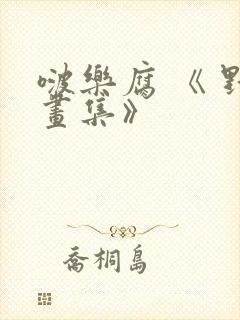 啵樂腐《野
畫集》
喬桐島